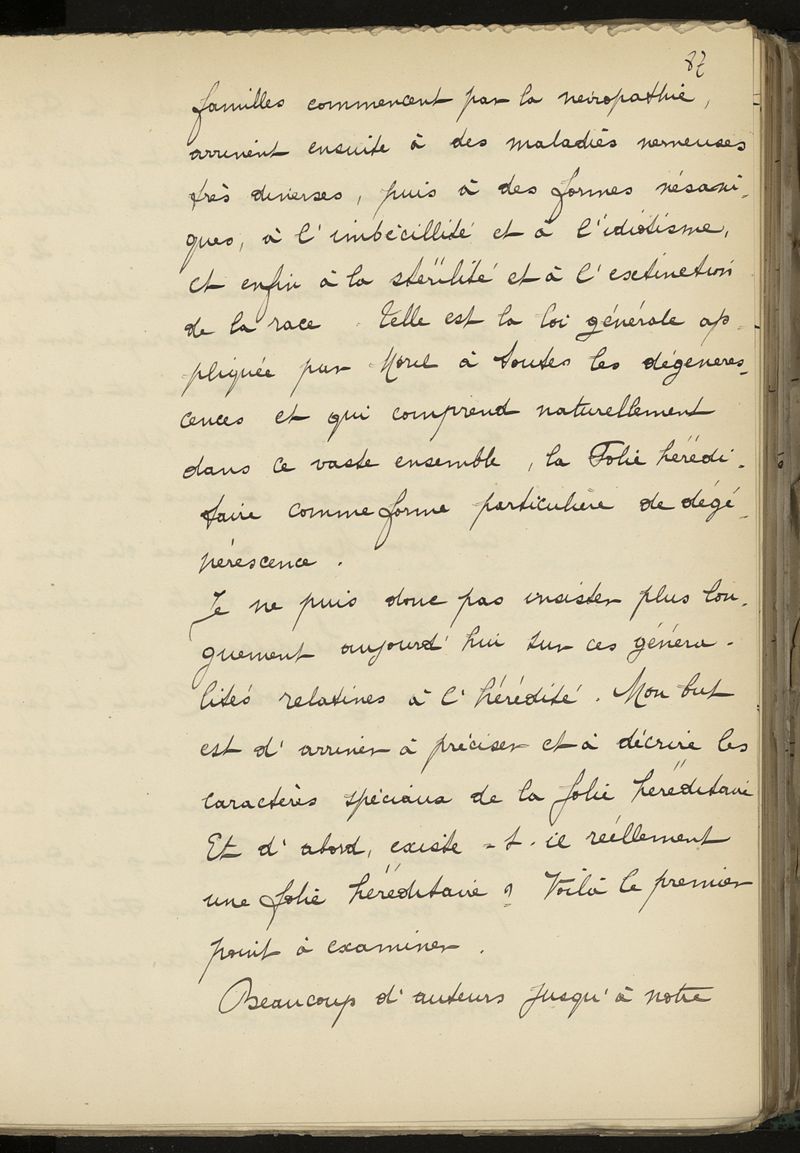 87
familles commencent par la névropathie,
arrivent ensuite à des maladies nerveuses
très diverses, puis à des formes vésani-
ques, à l'imbécillité et à l'idiotisme,
et enfin à la stérilité et à l'extinction
de la race. Telle est la loi générale ap-
pliquée par Morel à toutes les dégéneres-
cences et qui comprend naturellement
dans ce vaste ensemble, la Folie hérédi-
taire comme forme particulière de dégé-
nérescence.
Je ne puis donc pas insister plus lon-
guement aujourd'hui sur ces généra-
lités relatives à l'hérédité. Mon but
est d'arriver à préciser et à décrire les
caractères spéciaux de la folie héréditaire
Et d'abord, existe-t-il réellement
une folie héréditaire? Voilà le premier
point à examiner.
Beaucoup d'auteurs jusqu'à notre